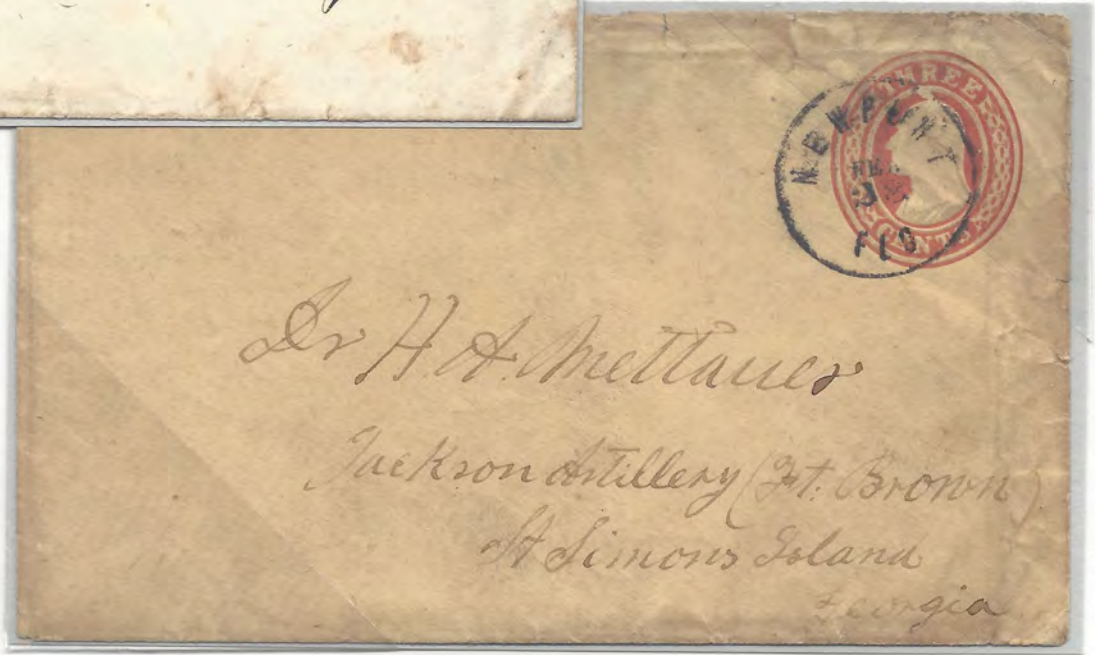 THREE
CENTS
NEWPORT
FEB
FLO
Dr H A. Mettauer
Jackson Artillery (Ft. Brown)
St Simons Island
Georgia